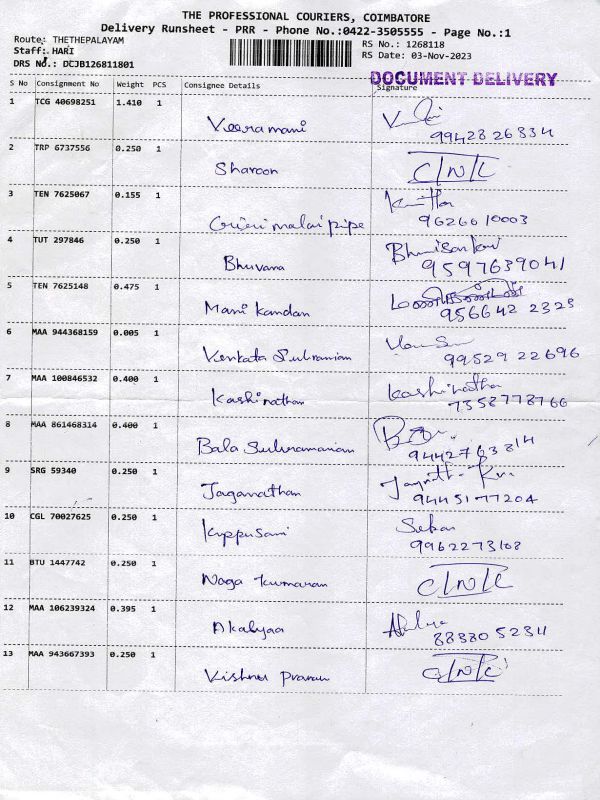 THE PROFESSIONAL COURIERS, COIMBATORE
Delivery Runsheet - PRR - Phone No.:0422-3505555 - Page No.:1
Route: THETHEPALAYAM
RS No.: 1268118
Staff: HARI
RS Date: 03-Nov-2023
DRS No.: DCJB126811801
DOCUMENT DELIVERY
S No Consignment No Weight PCS Consignee Details Signature
1 TCG 40698251 1.410 1 Veeramani
9942826834
2 TRP 6737556 0.250 1 Sharoon C/N/C
3 TEN 7625067 0.155 1 pipe
9626610003
4 TUT 297846 0.250 1 Bhuvana
9597639041
5 TEN 7625148 0.475 1 Mani Kandan
956642 2323
6 MAA 944368159 0.005 1 Venkata Subramian
99529 22696
7 MAA 100846532 0.400 1 Kashinathan Kashinathan
7358778766
8 MAA 861468314 0.400 1 Bala Subramaniam
9442763814
9 SRG 59340 0.250 1 Jaganathan
9445177204
10 CGL 70027625 0.250 1 Kuppusami Sekar
9962273108
11 BTU 1447742 0.250 1 Naga Kumaran C/N/C
12 MAA 106239324 0.395 1 Akalyaa
8838052311
13 MAA 943667393 0.250 1 Vishnu Pranav C/N/C